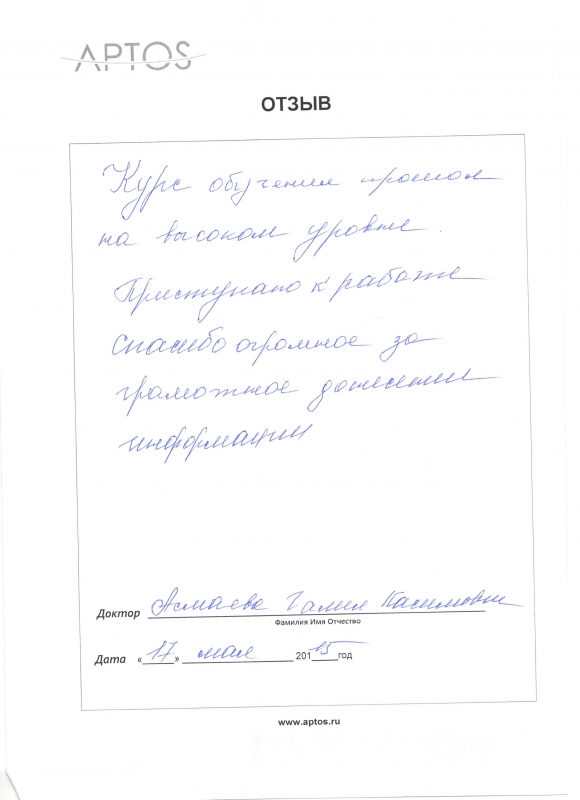 APTOS
ОТЗЫВ
Курс обучения прошол
на высоком уровне.
Приступаю к работе
Спасибо огромное за
грамотное донесении
информации
Доктор Асмаева Галия Касимовне
Фамилия Имя Отчество
Дата «17» мая 2015 год
www.aptos.ru